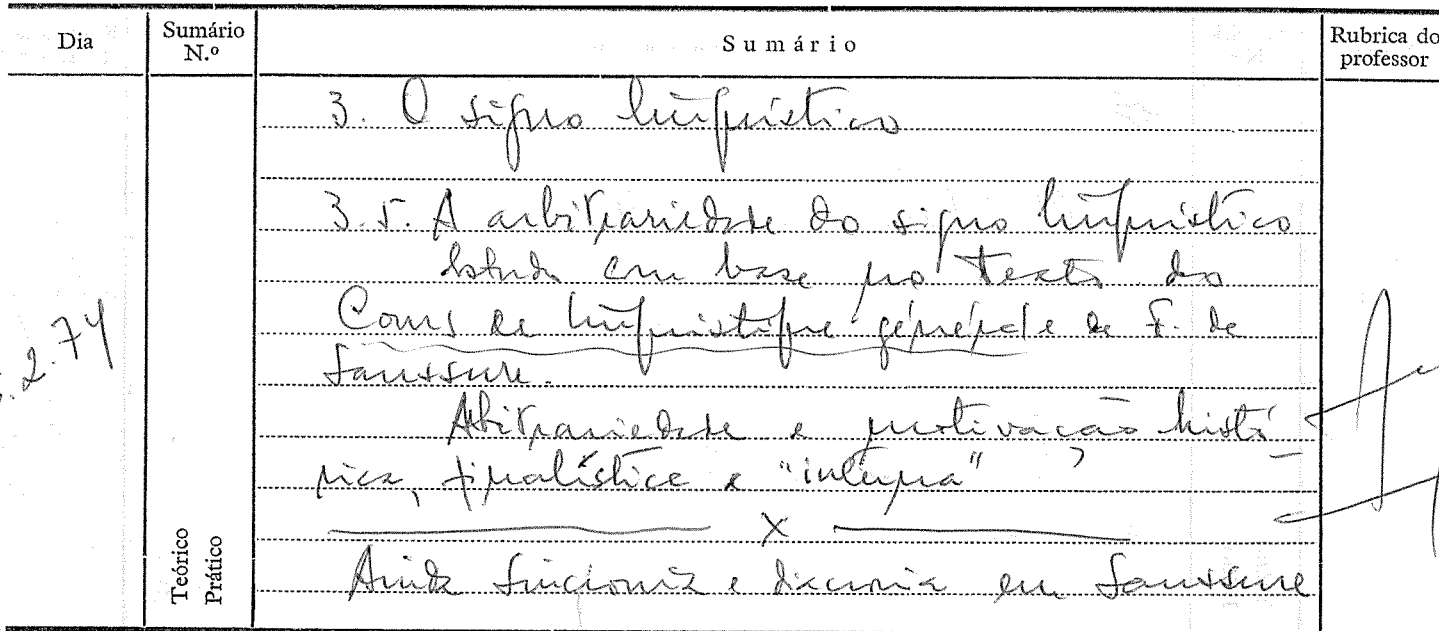 Dia
Sumário
N.º
Sumário
Rubrica do
professor
3. O signo linguístico
3.5. A arbitrariedade do signo linguístico
Estudo com base no texto do
Cours de linguistique générale de F. de
Saussure.
Arbitrariedade e motivação histó-
rica, finalística e "interna"
X
Ainda sincronia e diacronia em Saussure
.2.74
Teórico
Prático